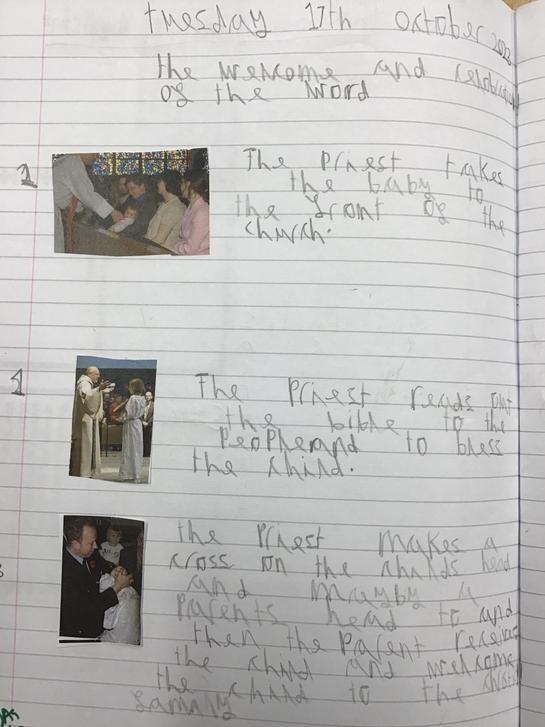 Tuesday 17th October
the welcome and
of the word
1
The Priest takes
the baby to
the front of the
church.
The Priest reads out
the bible to the
People and to bless
the child.
the Priest makes a
cross on the childs head
and mayby a
Parents head to and
then the Parent
the child and welcome
the child to the
family